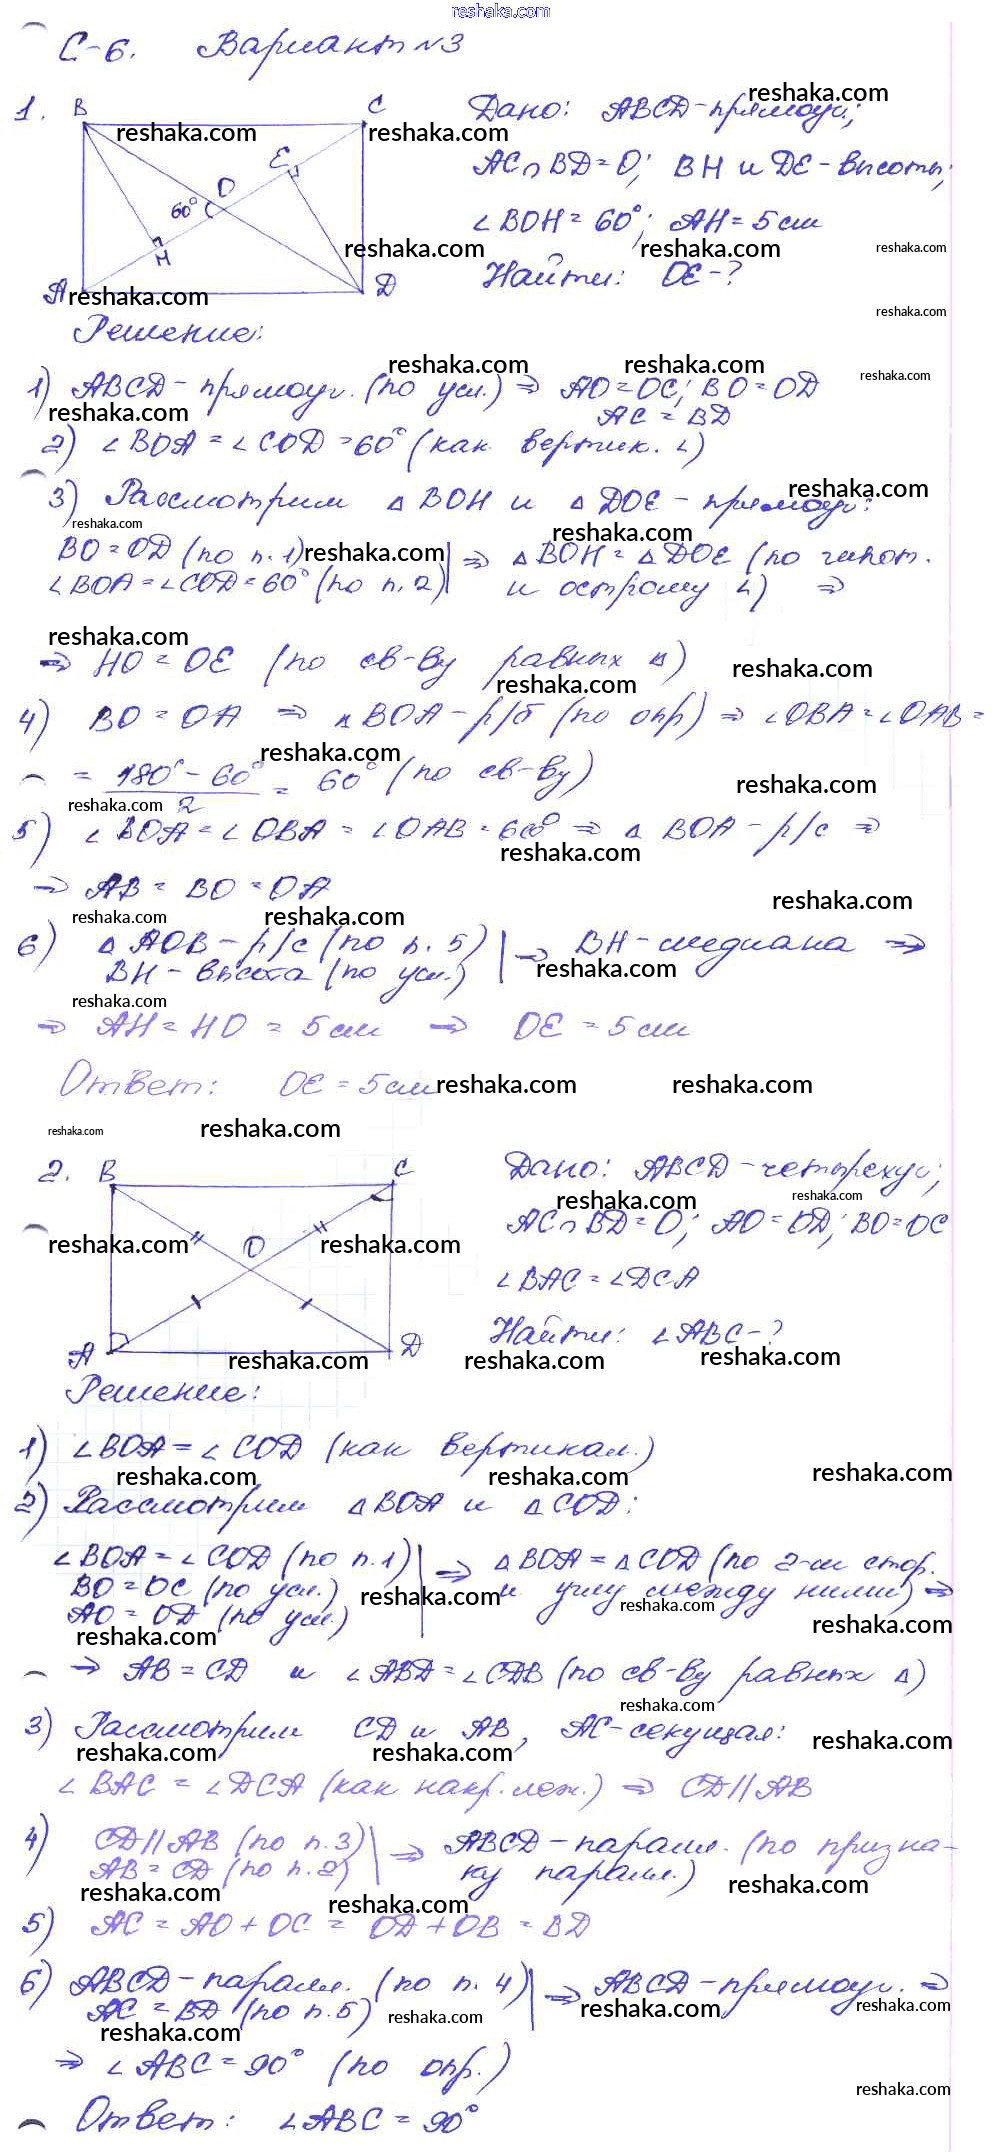 reshaka.com
С-6. Вариант №3
1. B C
Дано: ABCD-прямоуг.;
AC∩BD=O; BH и DE-высоты;
∠BOH=60°; AH=5см
Найти: OE-?
E
O
60°
H
A D
Решение:
1) ABCD-прямоуг. (по усл.) ⇒ AO=OC; BO=OD
AC=BD
2) ∠BOA=∠COD=60° (как вертик. ∠)
3) Рассмотрим △BOH и △DOE-прямоуг:
BO=OD (по п.1) | ⇒ △BOH=△DOE (по гипот.
∠BOA=∠COD=60° (по п.2) | и острому ∠) ⇒
⇒ HO=OE (по св-ву равных △)
4) BO=OA ⇒ △BOA-р/б (по опр) ⇒ ∠OBA=∠OAB=
= (180°-60°)/2 = 60° (по св-ву)
5) ∠BOA=∠OBA=∠OAB=60° ⇒ △BOA-р/с ⇒
⇒ AB=BO=OA
6) △AOB-р/с (по п.5) | ⇒ BH-медиана ⇒
BH-высота (по усл.) |
⇒ AH=HO=5см ⇒ OE=5см
Ответ: OE=5см
2. B C
Дано: ABCD-четырехуг;
AC∩BD=O; AO=OD; BO=OC
∠BAC=∠DCA
Найти: ∠ABC-?
O
A D
Решение:
1) ∠BOA=∠COD (как вертикал.)
2) Рассмотрим △BOA и △COD:
∠BOA=∠COD (по п.1) | ⇒ △BOA=△COD (по 2-м стор.
BO=OC (по усл.) | и углу между ними) ⇒
AO=OD (по усл.) |
⇒ AB=CD и ∠ABD=∠CDB (по св-ву равных △)
3) Рассмотрим CD и AB, AC-секущая:
∠BAC=∠DCA (как накр. леж.) ⇒ CD||AB
4) CD||AB (по п.3) | ⇒ ABCD-паралл. (по призна-
AB=CD (по п.2) | ку паралл.)
5) AC=AO+OC=OD+OB=BD
6) ABCD-паралл. (по п.4) | ⇒ ABCD-прямоуг. ⇒
AC=BD (по п.5) |
⇒ ∠ABC=90° (по опр.)
Ответ: ∠ABC=90°